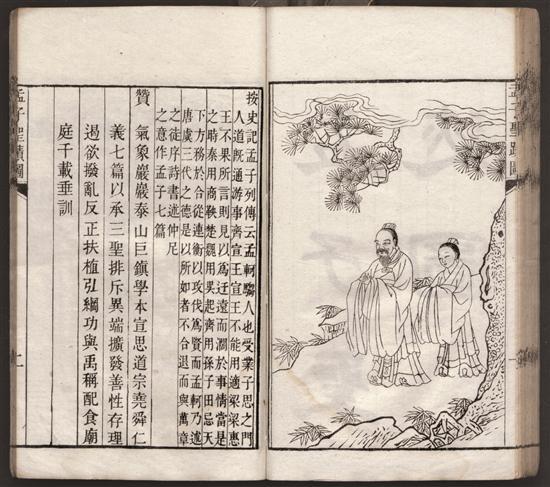 按史記孟子列傳云孟軻騶人也受業子思之門
人道旣通游事齊宣王宣王不能用適梁梁惠
王不果所言則見以爲迂遠而濶於事情當是
之時秦用商鞅楚魏用吳起齊用孫子田忌天
下方務於合從連衡以攻伐爲賢而孟軻乃述
唐虞三代之德是以所如者不合退而與萬章
之徒序詩書述仲尼
之意作孟子七篇
贊 氣象巖巖泰山巨鎮學本宣思道宗堯舜仁
義七篇以承三聖排斥異端擴發善性存理
遏欲撥亂反正扶植引綱功與禹稱配食廟
庭千載垂訓
孟子聖蹟圖